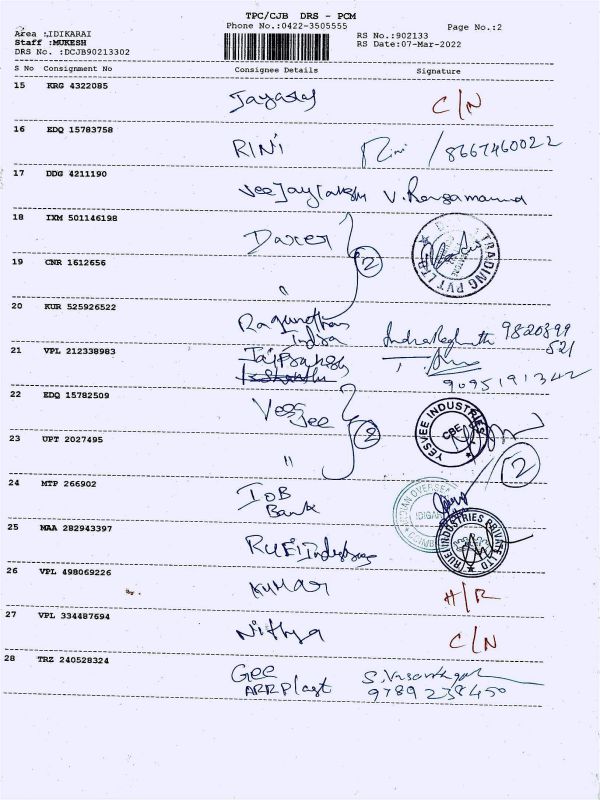 TPC/CJB DRS - PCM
Phone No.:0422-3505555
Page No.:2
Area :,IDIKARAI
Staff :MUKESH
DRS No. :DCJB90213302
RS No.:902133
RS Date:07-Mar-2022
S No Consignment No Consignee Details Signature
15 KRG 4322085 C/N
16 EDQ 15783758 RINi Rini /8667460022
17 DDG 4211190
18 IXM 501146198 2 TRADING PVT LTD
19 CNR 1612656 "
20 KUR 525926522 Indira 9820899
521
21 VPL 212338983
9095191342
22 EDQ 15782509 Vee Jee 2 YESVEE INDUSTRIES CBE
23 UPT 2027495 " 2
24 MTP 266902 IOB
Bank
25 MAA 282943397 INDUSTRIES PRIVATE LTD
26 VPL 498069226 Kumar H/R
27 VPL 334487694 Nithya C/N
28 TRZ 240528324 Gee
ARR Plast 9789238450